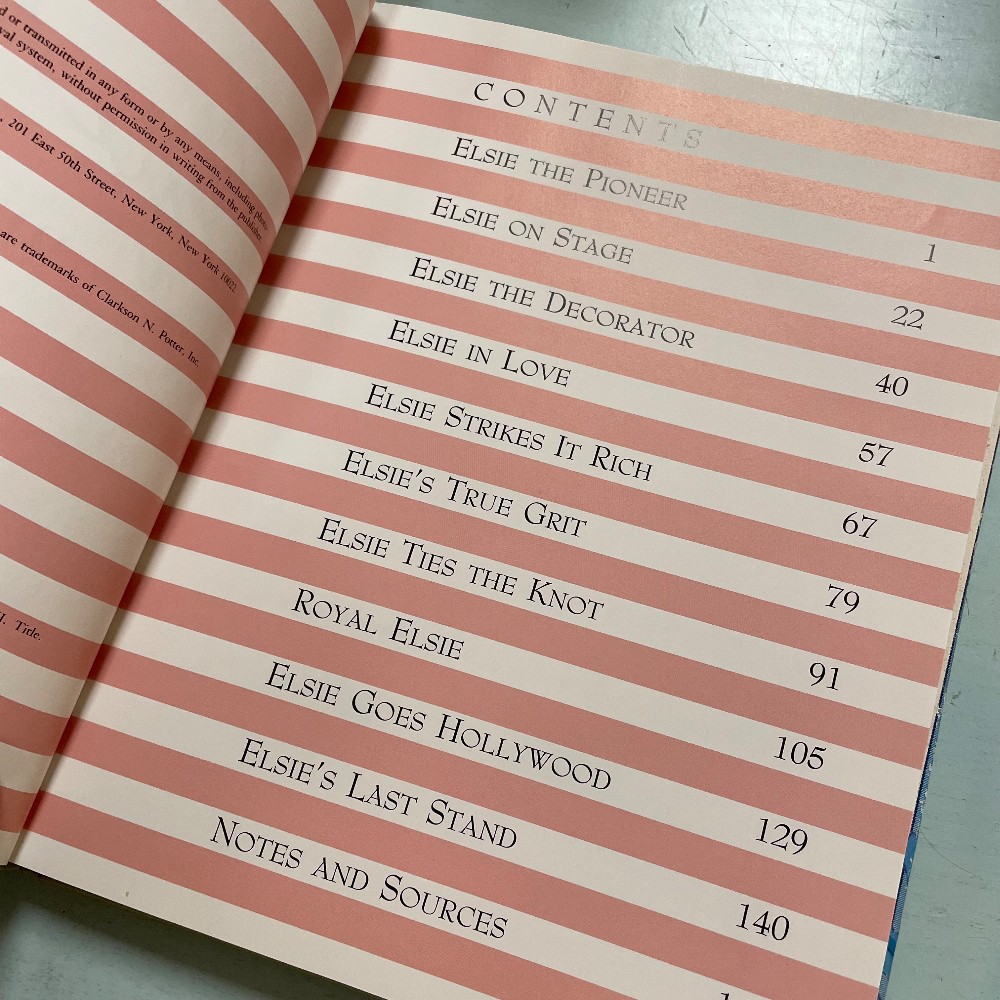 d or transmitted in any form or by any means, including photo-
val system, without permission in writing from the publisher.
, 201 East 50th Street, New York, New York 10022.
are trademarks of Clarkson N. Potter, Inc.
Title.
CONTENTS
ELSIE THE PIONEER 1
ELSIE ON STAGE 22
ELSIE THE DECORATOR 40
ELSIE IN LOVE 57
ELSIE STRIKES IT RICH 67
ELSIE'S TRUE GRIT 79
ELSIE TIES THE KNOT 91
ROYAL ELSIE 105
ELSIE GOES HOLLYWOOD 129
ELSIE'S LAST STAND 140
NOTES AND SOURCES